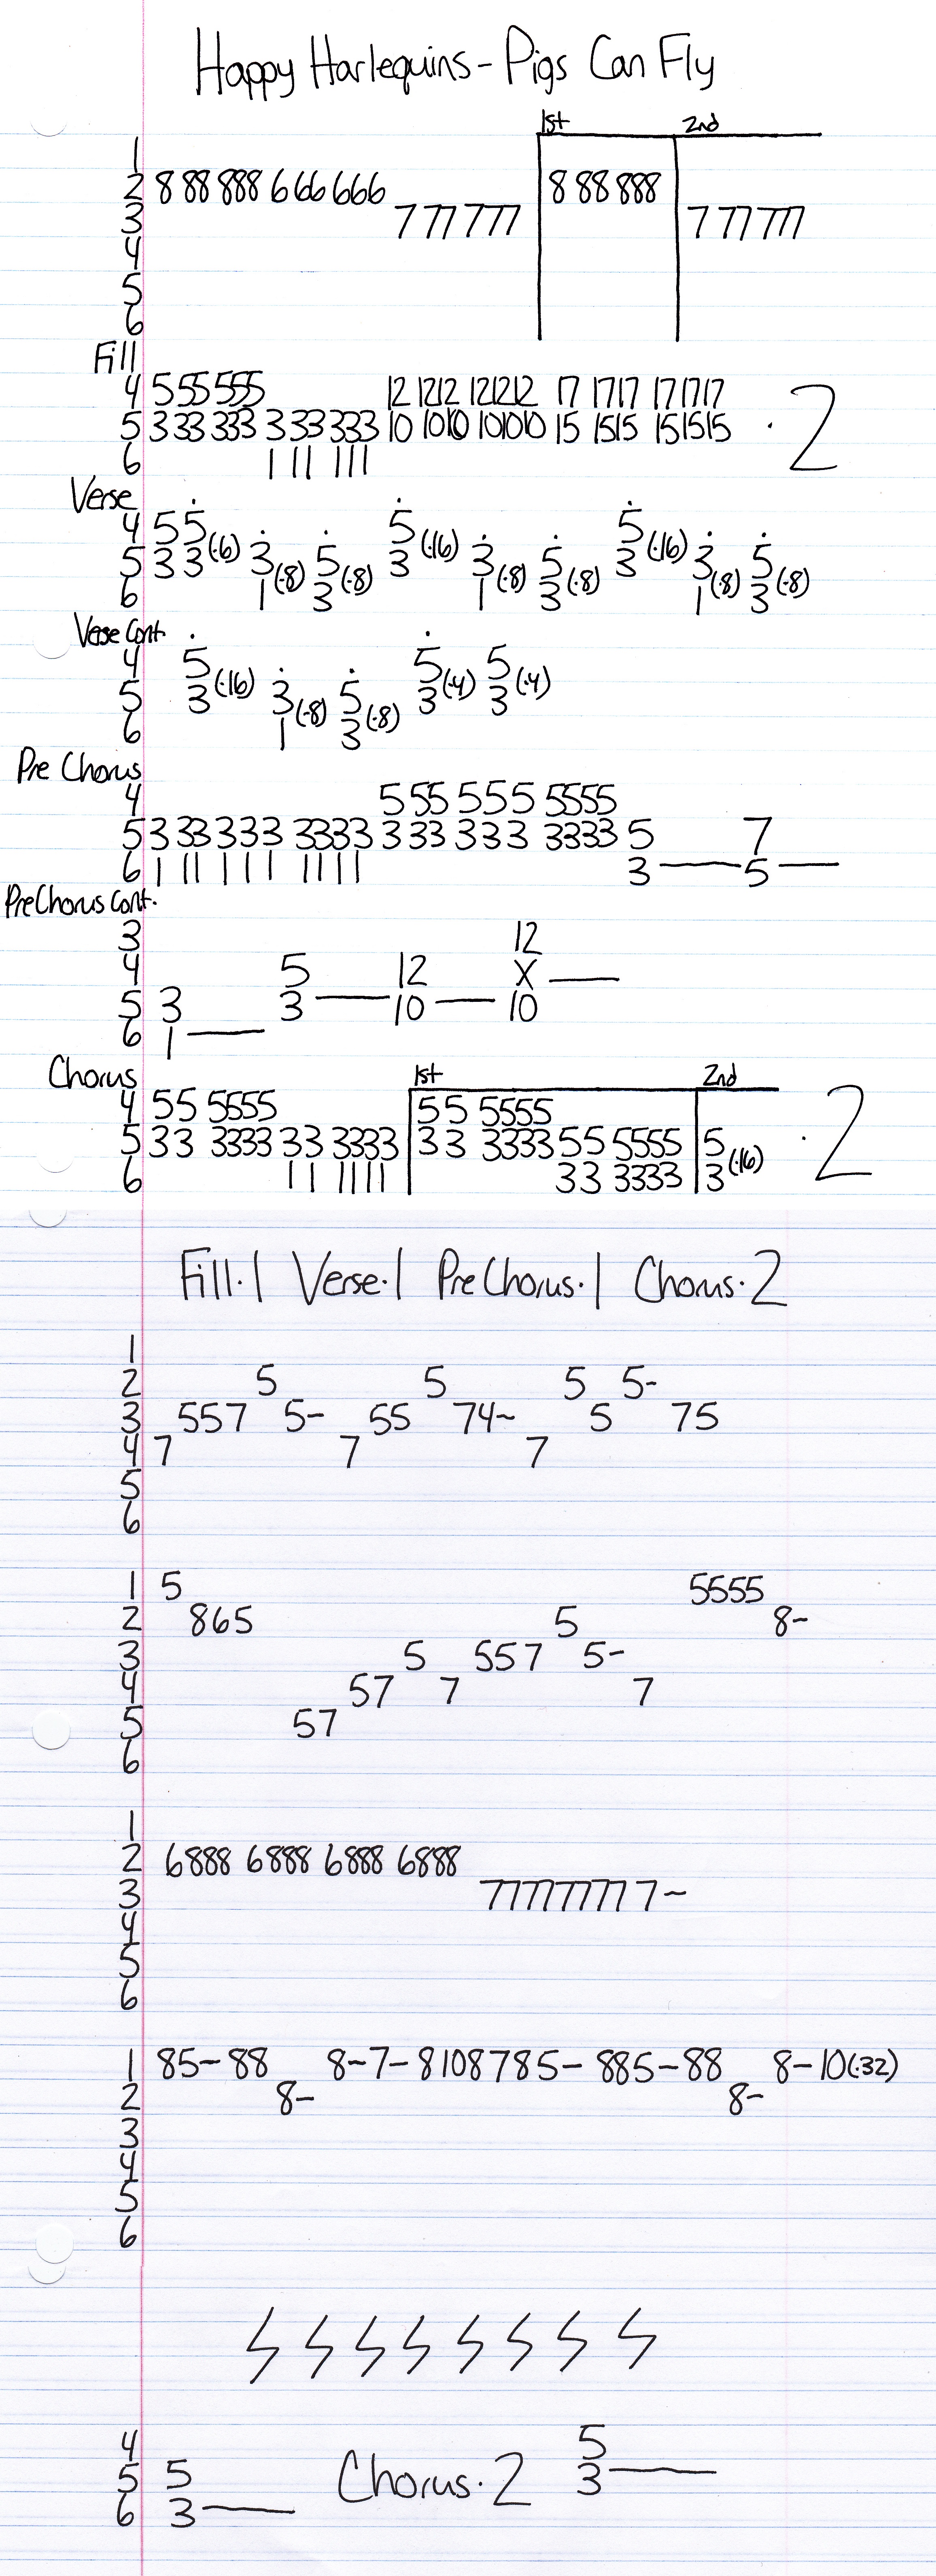 Happy Harlequins - Pigs Can Fly
1st 2nd
1
2 8 88 888 6 66 666 8 88 888
3 7 77 777 7 77 777
4
5
6
Fill
4 5 55 555 12 1212 121212 17 1717 171717
5 3 33 333 3 33 333 10 1010 101010 15 1515 151515 · 2
6 1 11 111
Verse
4 5 5 5 5
5 3 3 (·6) 3 5 3 (·16) 3 5 3 (·16) 3 5
6 1 (·8) 3 (·8) 1 (·8) 3 (·8) 1 (·8) 3 (·8)
Verse Cont.
4 5 5 5
5 3 (·16) 3 5 3 (·4) 3 (·4)
6 1 (·8) 3 (·8)
Pre Chorus
4 5 55 5 5 5 5555
5 3 33 3 3 3 3333 3 33 3 3 3 3333 5 7
6 1 11 1 1 1 1111 3 — 5 —
Pre Chorus Cont.
3 12
4 5 12 X —
5 3 3 — 10 — 10
6 1 —
Chorus 1st 2nd
4 5 5 5555 5 5 5555
5 3 3 3333 3 3 3333 3 3 3333 5 5 5555 5 · 2
6 1 1 1111 3 3 3333 3 (·16)
Fill·1 Verse·1 PreChorus·1 Chorus·2
1
2 5 5 5 5-
3 557 5- 55 74~ 5 75
4 7 7 7
5
6
1 5 5555
2 865 5 8~
3 5 557 5-
4 57 7 7
5 57
6
1
2 6888 6888 6888 6888
3 77777777 7~
4
5
6
1 85-88 8-7-8108785- 885-88 8-10(·32)
2 8- 8-
3
4
5
6
4 5
5 5 Chorus·2 3 —
6 3 —